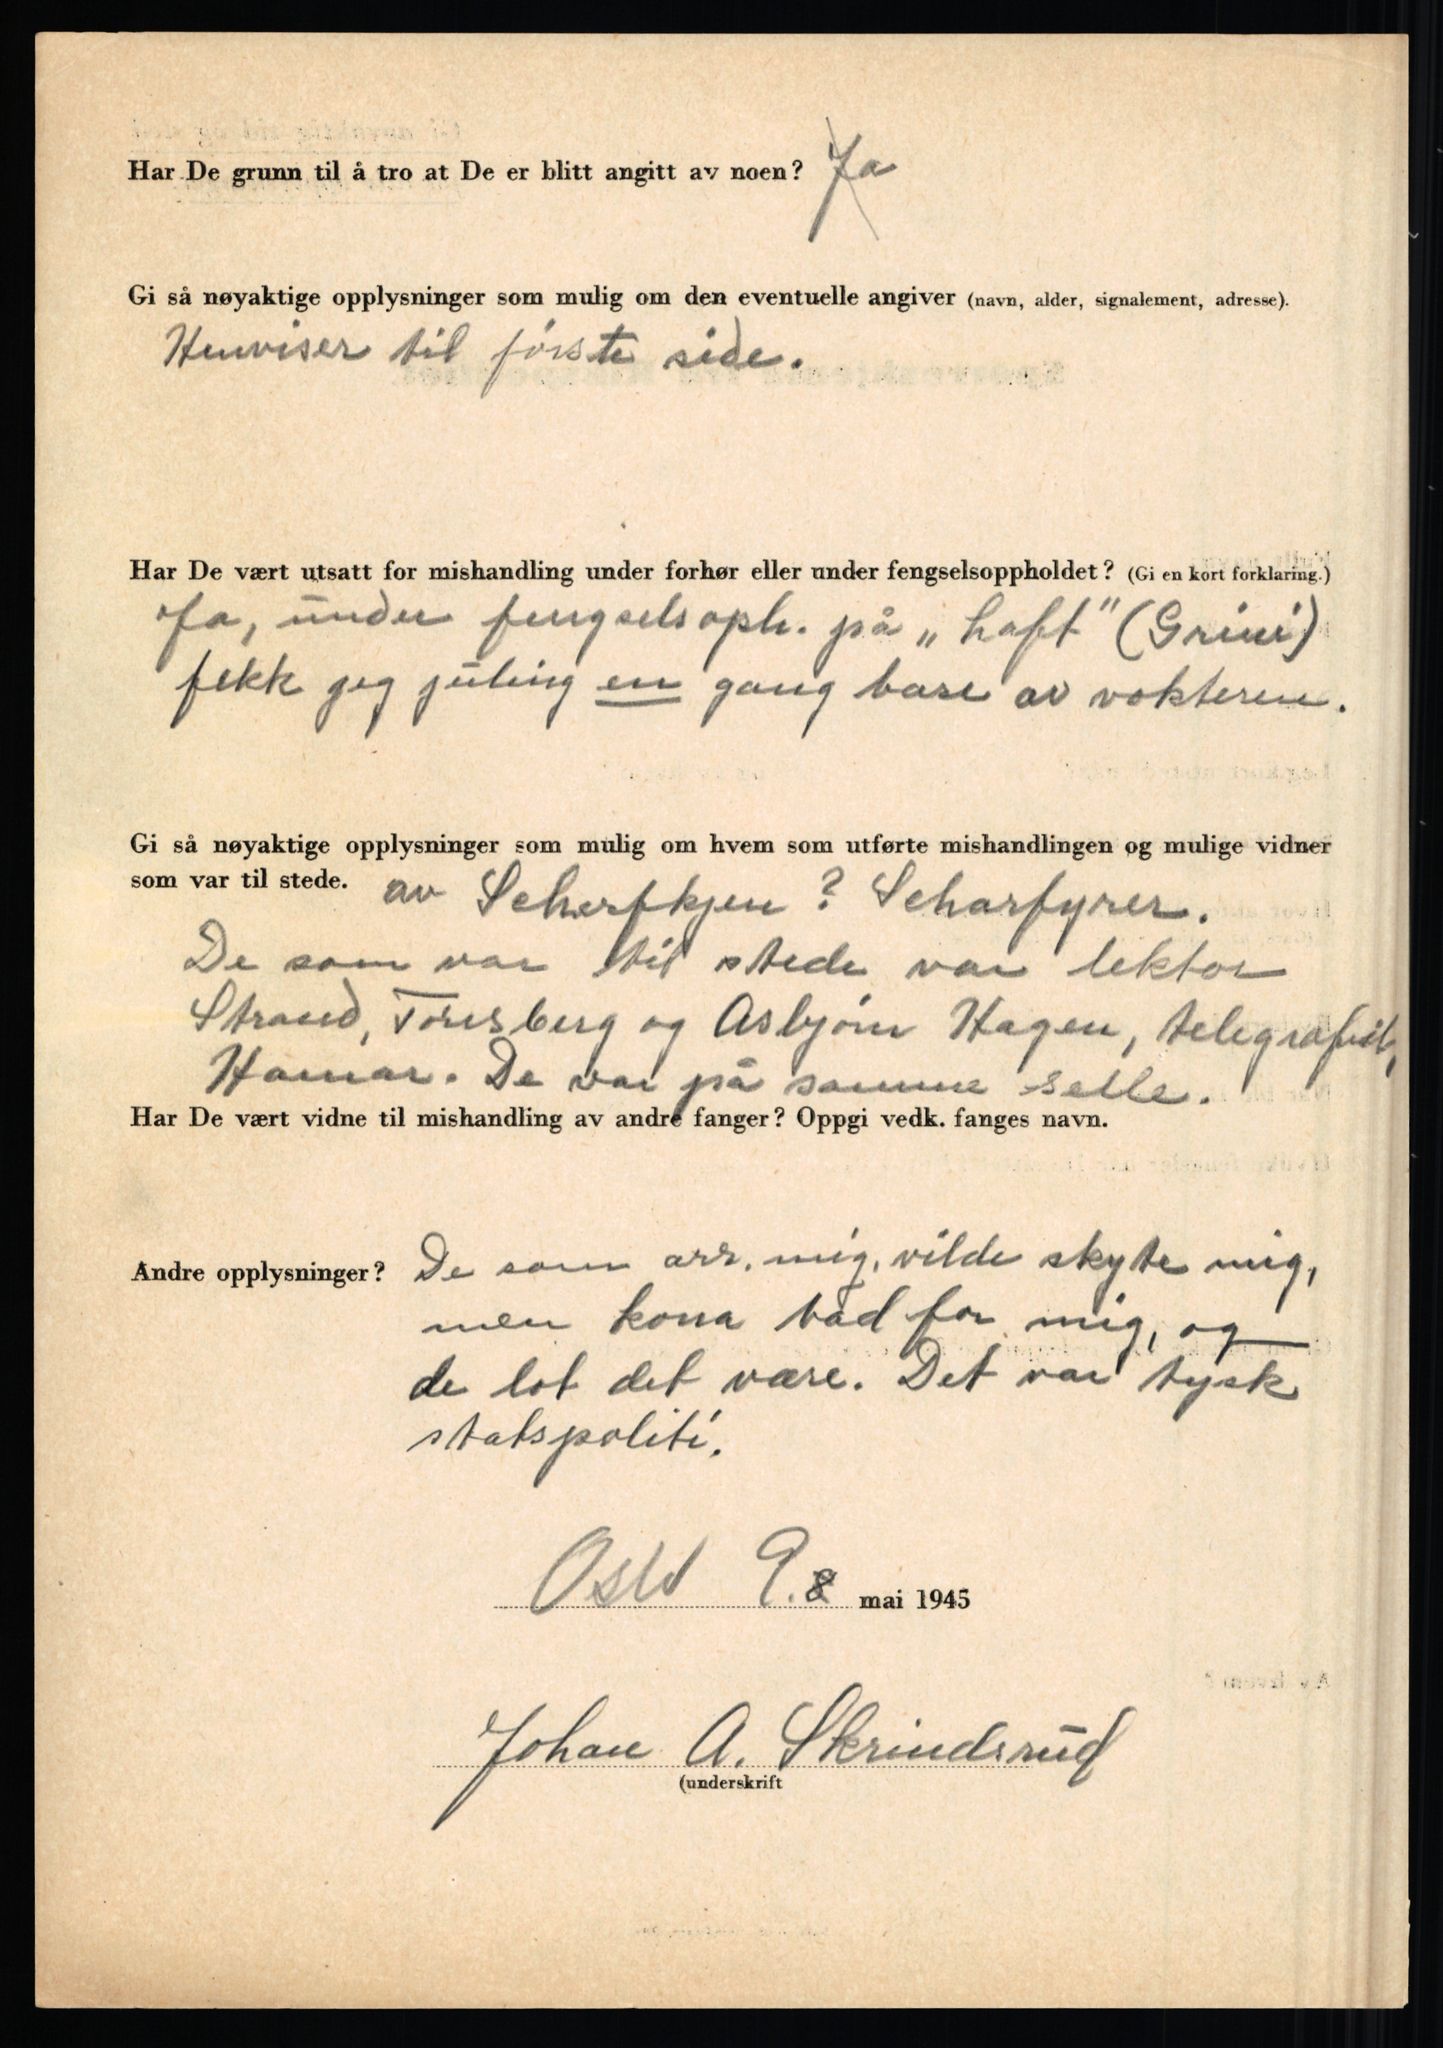 Har De grunn til å tro at De er blitt angitt av noen? Ja
Gi så nøyaktige opplysninger som mulig om den eventuelle angiver (navn, alder, signalement, adresse).
Henviser til første side.
Har De vært utsatt for mishandling under forhør eller under fengselsoppholdet? (Gi en kort forklaring.)
Ja, under fengselsoph. på „haft" (Grini)
fekk jeg juling en gang bare av vokteren.
Gi så nøyaktige opplysninger som mulig om hvem som utførte mishandlingen og mulige vidner
som var til stede. av Scherfkjen? Scharfyrer.
De som var til stede var lektor
Strand, Tønsberg og Asbjørn Hagen, telegrafist,
Hamar. De var på samme selle.
Har De vært vidne til mishandling av andre fanger? Oppgi vedk. fanges navn.
Andre opplysninger? De som arr. mig, vilde skyte mig,
men kona bad for mig, og
de lot det være. Det var tysk
statspoliti.
Oslo 9. mai 1945
Johan A. Skrindsrud
(underskrift